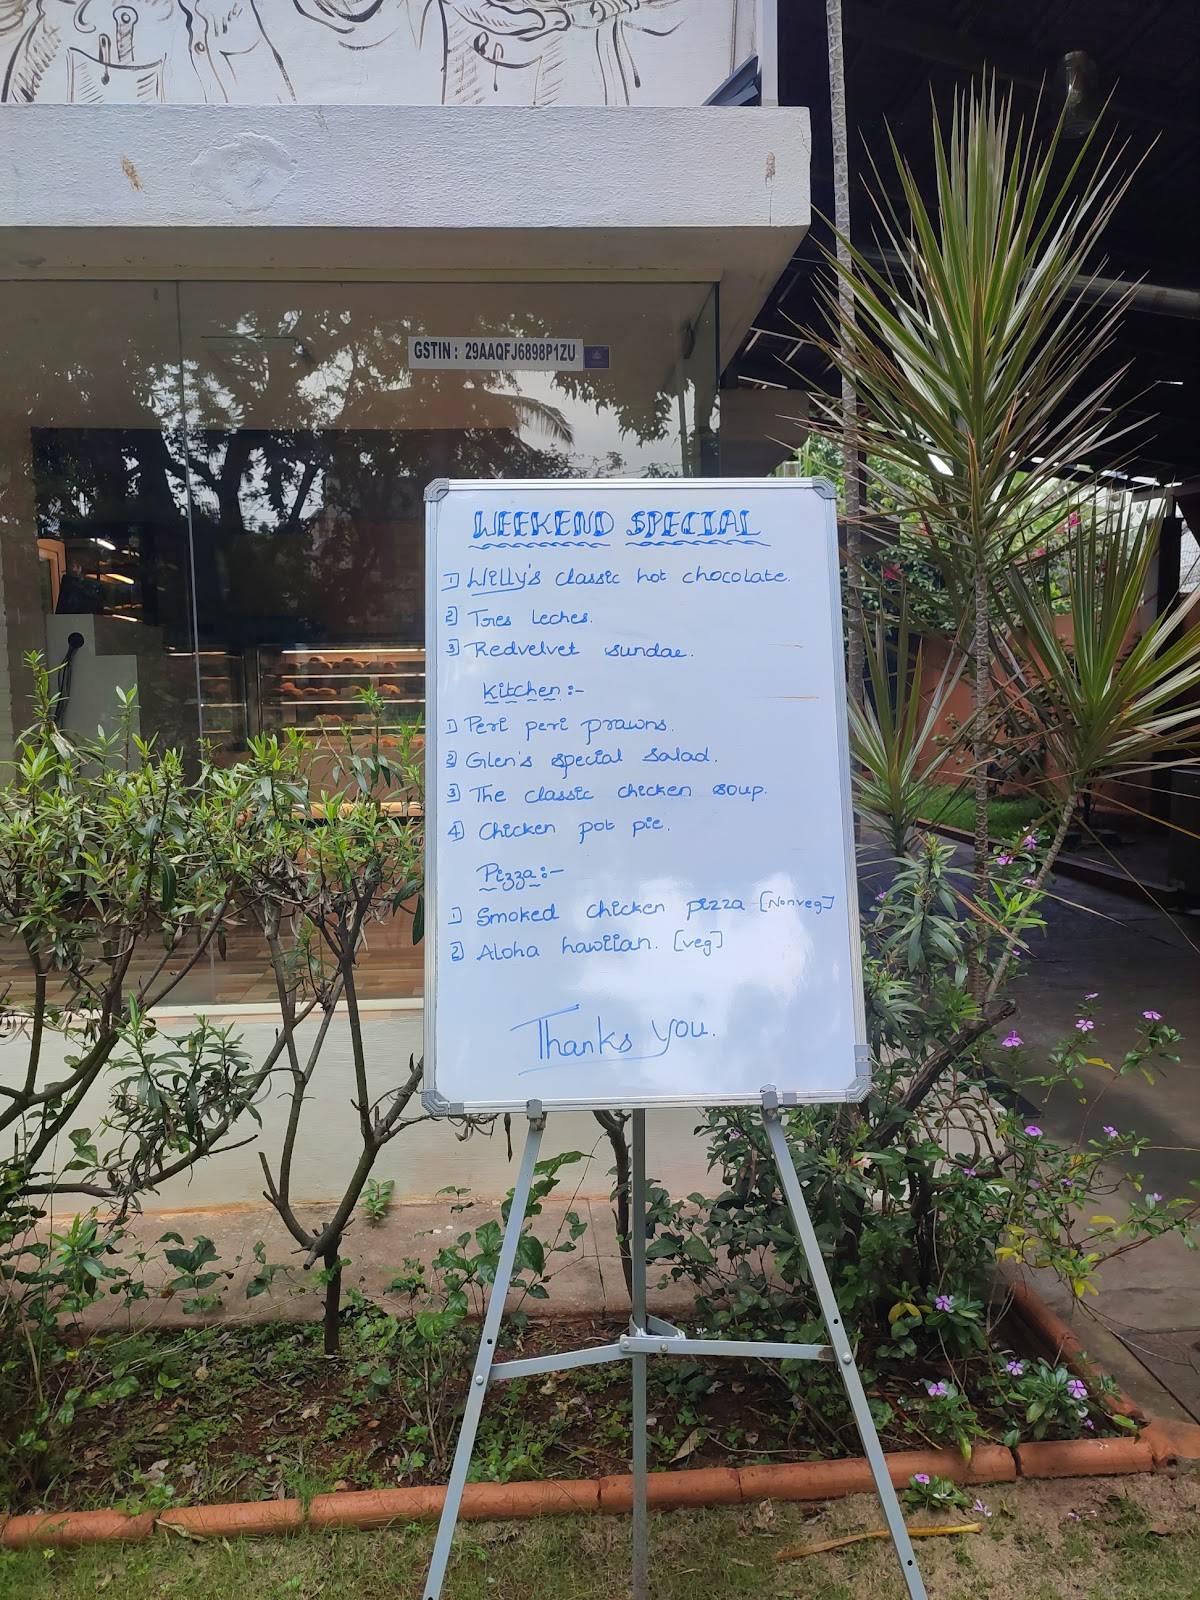 GSTIN : 29AAQFJ6898P1ZU
WEEKEND SPECIAL
1] Willy's classic hot chocolate.
2] Tres leches.
3] Redvelvet sundae.
Kitchen :-
1] Peri peri prawns.
2] Glen's special salad.
3] The classic chicken soup.
4] Chicken pot pie.
Pizza :-
1] Smoked chicken pizza [Nonveg]
2] Aloha hawiian. [veg]
Thanks you.